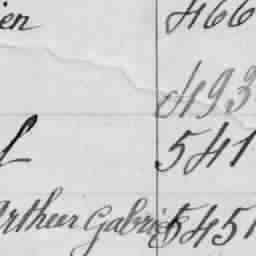 ien 466
493
L 541
Arthur Gabriel 5451